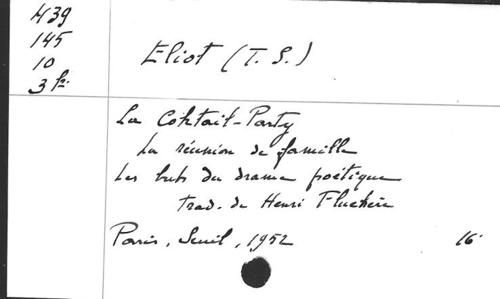 H 39
145
10
Eliot (T. S.)
La Coktail-Party
La réunion de famille
Les buts du drame poétique
trad. de Henri Fluchère
Paris, Seuil, 1952
16